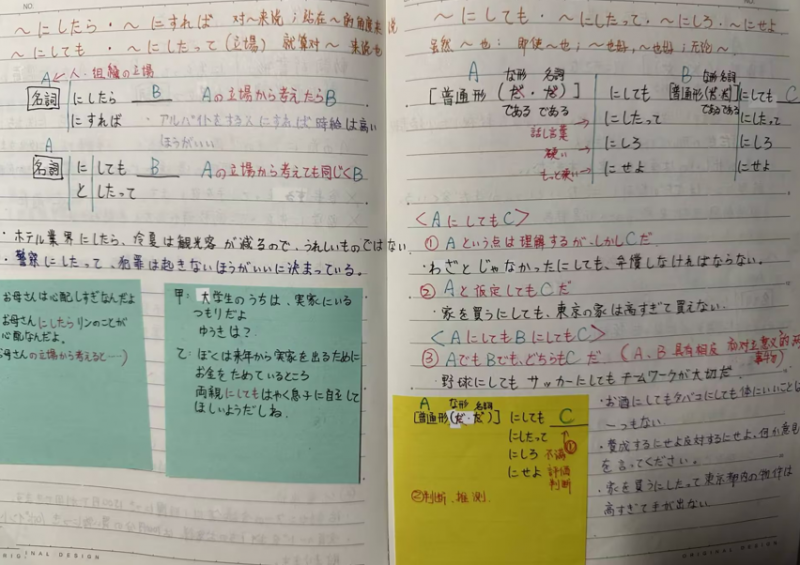 ～にしたら・～にすれば 对～来说；站在～的角度来说
～にしても・～にしたって(立場) 就算对～来说也
A←人・組織の立場
名詞 にしたら B Aの立場から考えたらB
にすれば ・アルバイトをする人にすれば時給は高いほうがいい
A
名詞 にしても B Aの立場から考えても同じくB
としたって
・ホテル業界にしたら、冷夏は観光客が減るので、うれしいものではない。
・警察にしたって、犯罪は起きないほうがいいに決まっている。
お母さんは心配しすぎなんだよ
お母さんにしたらリンのことが
心配なんだよ。
お母さんの立場から考えると……)
甲：大学生のうちは、実家にいる
つもりだよ
ゆうきは？
乙：ぼくは来年から実家を出るために
お金をためているところ
両親にしてもはやく息子に自立して
ほしいようだしね。
～にしても・～にしたって・～にしろ・～にせよ
虽然～也；即使～也；～也好，～也好；无论～
A な形 名詞 B な形 名詞
[普通形(だ・だ)] にしても [普通形(だ・だ)] にしても C
である である にしたって であるである にしたって
話し言葉→
硬い→ にしろ にしろ
もっと硬い→ にせよ にせよ
<AにしてもC>
①Aという点は理解するが、しかしCだ
・わざとじゃなかったにしても、弁償しなければならない。
②Aと仮定してもCだ
・家を買うにしても、東京の家は高すぎて買えない.
<AにしてもBにしてもC>
③AでもBでも、どちらもCだ (A、B具有相反或对立意义的两事物)
・野球にしてもサッカーにしてもチームワークが大切だ.
A な形 名詞
[普通形(だ・だ)] にしても C
にしたって ↑①
にしろ 不満
にせよ 評価
判断
②判断、推測
・お酒にしてもタバコにしても体にいいことは
一つもない.
・賛成するにせよ反対するにせよ、何か意見
を言ってください。
・家を買うにしたって東京都内の物件は
高すぎて手が出ない
ORIGINAL DESIGN